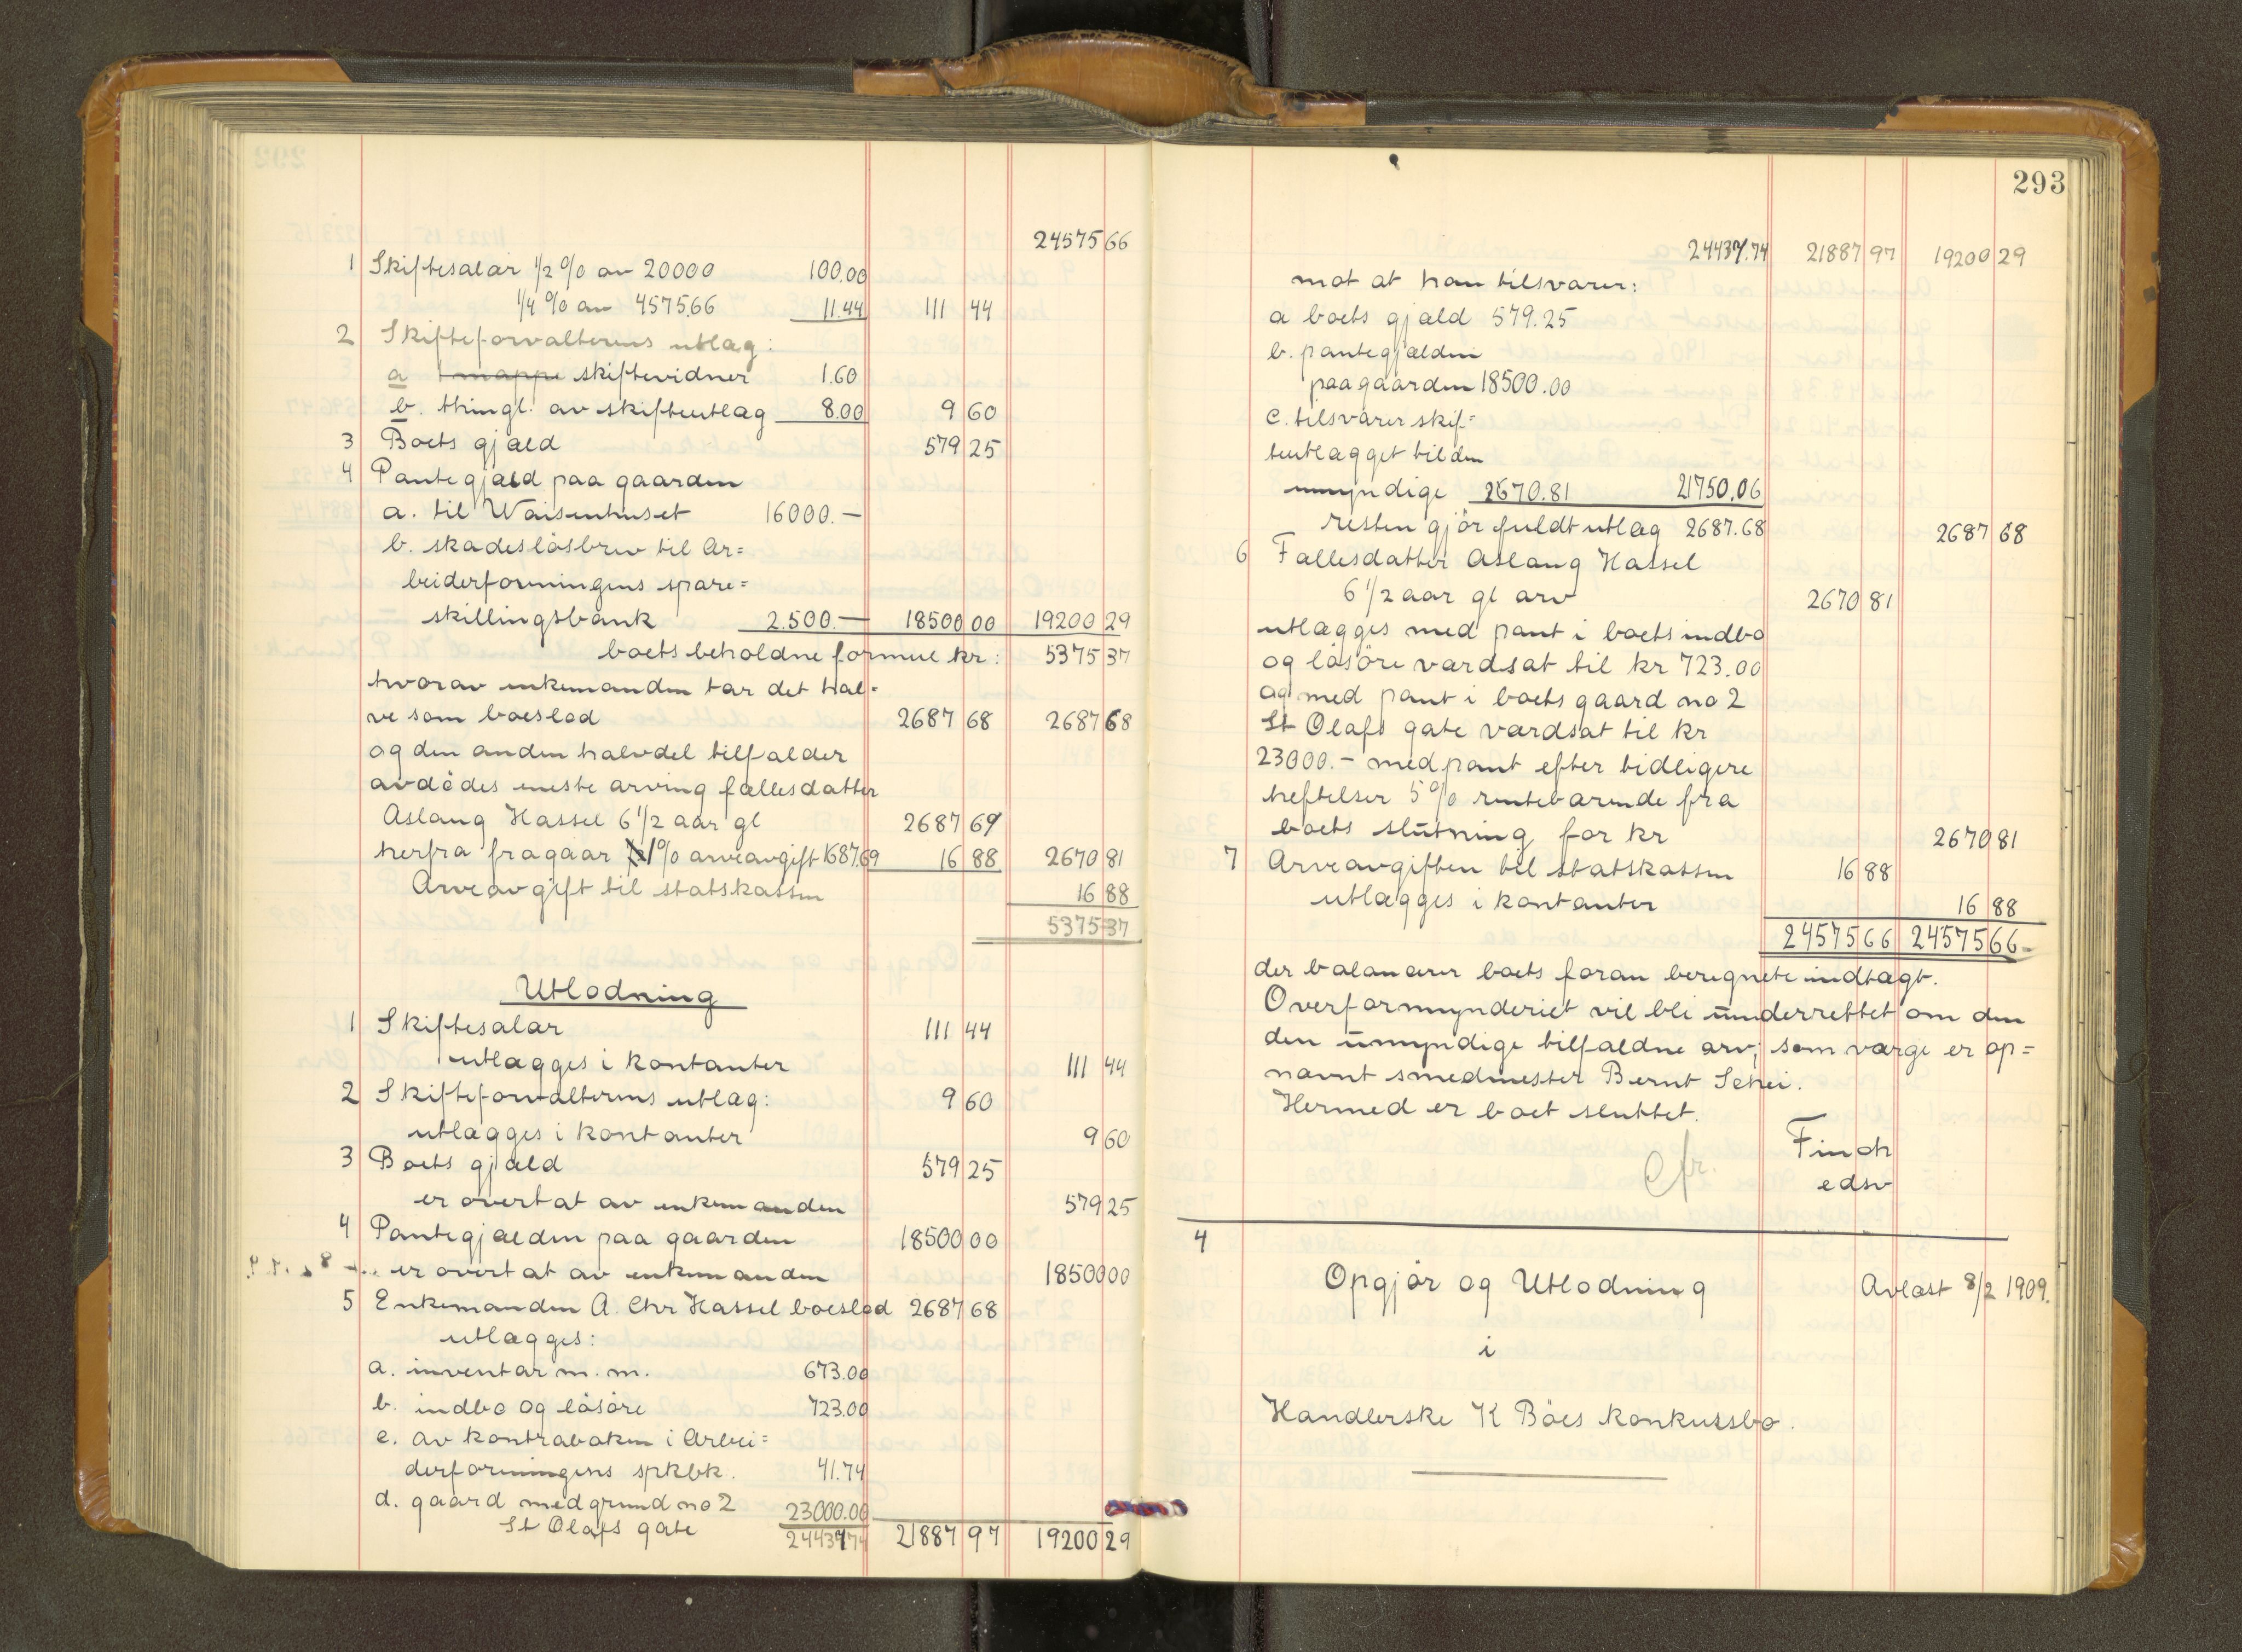 24575 66
1 Skiftesalær 1/2 % av 20000 100.00
1/4 % av 4575.66 11.44 111 44
2 Skifteforvalterens utlæg:
a 1 mappe skiftevidner 1.60
b. thingl. av skifteutlæg 8.00 9 60
3 Boets gjæld 579 25
4 Pantegjæld paa gaarden
a. til Waisenhuset 16000.—
b. skadesløsbrev til Ar=
beiderforeningens spare=
skillingsbank 2.500.— 18500 00 19200 29
boets beholdne formue kr: 5375 37
hvorav enkemanden tar det hal=
ve som boeslod 2687 68 2687 68
og den anden halvdel tilfalder
avdødes eneste arving fællesdatter
Aslaug Hassel 6 1/2 aar gl 2687 69
herfra fragaar 1% arveavgift 1687.69 16 88 2670 81
Arveavgift til statskassen 16 88
5375 37
Utlodning
1 Skiftesalær 111 44
utlægges i kontanter 111 44
2 Skifteforvalterens utlæg: 9 60
utlægges i kontanter 9 60
3 Boets gjæld 579 25
er overtat av enkemanden 579 25
4 Pantegjælden paa gaarden 18500 00
er overtat av enkemanden 18500 00
5 Enkemanden A. Chr Hassel boeslod 2687 68
utlægges:
a. inventar m. m. 673.00
b. indbo og løsøre 723.00
c. av kontraboken i Arbei=
derforeningens spkbk. 41.74
d. gaard med grund no 2 23000.00
St Olafs gate 24437 74 21887 97 19200 29
293
24437.74 21887 97 19200 29
mot at han tilsvarer:
a boets gjæld 579.25
b. pantegjælden
paa gaarden 18500.00
c. tilsvarer skif=
teutlægget til den
umyndige 2670.81 21750.06
resten gjør fuldt utlæg 2687.68 2687 68
6 Fællesdatter Aslaug Hassel
6 1/2 aar gl arv 2670 81
utlægges med pant i boets indbo
og løsøre værdsat til kr 723.00
og med pant i boets gaard no 2
St Olafs gate værdsat til kr
23000.- med pant efter tidligere
heftelser 5% rentebærende fra
boets slutning for kr 2670 81
7 Arveavgiften til statskassen 16 88
utlægges i kontanter 16 88
24575 66 24575 66
der balancerer boets foran beregnete indtægt.
Overformynderiet vil bli underrettet om den
den umyndige tilfaldne arv, som værge er op=
nævnt smedmester Bernt Schei.
Hermed er boet sluttet.
Finch
edsv
cfr.
4
Opgjør og Utlodning Avlæst 8/2 1909.
i
Handlerske K Böes konkursbo.